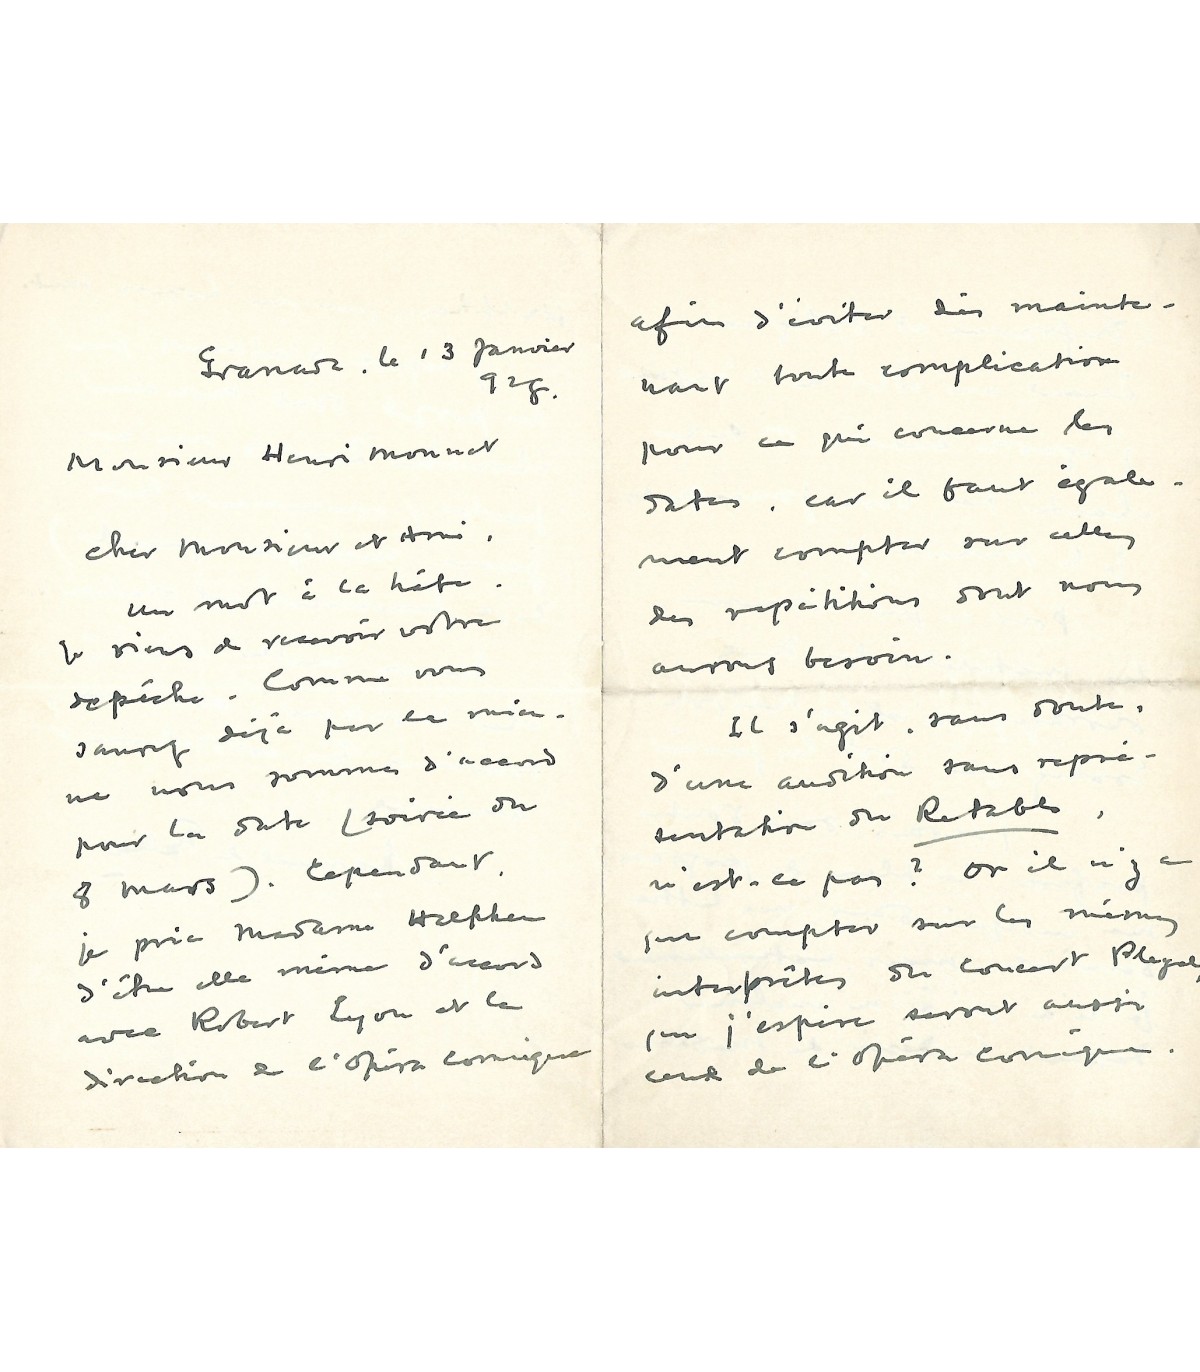 Granada, le 13 Janvier
928.
Monsieur Henri Monnet
Cher Monsieur et Ami,
Un mot à la hâte.
Je viens de recevoir votre
depêche. Comme vous
savez déjà par la mien-
ne nous sommes d'accord
pour la date (soirée du
8 Mars). Cependant,
je prie Madame Halphen
d'être elle même d'accord
avec Robert Lyon et la
direction de l'Opéra Comique
afin d'éviter dès mainte-
nant toute complication
pour ce qui concerne les
dates, car il faut égale-
ment compter sur celles
des repétitions dont nous
aurons besoin.
Il s'agit, sans doute,
d'une audition sans repré-
sentation du Retablo,
n'est-ce pas? Or il n'y a
qu'à compter sur les mêmes
interprêtes du Concert Pleyel,
qui j'espère seront aussi
ceux de l'Opéra Comique.